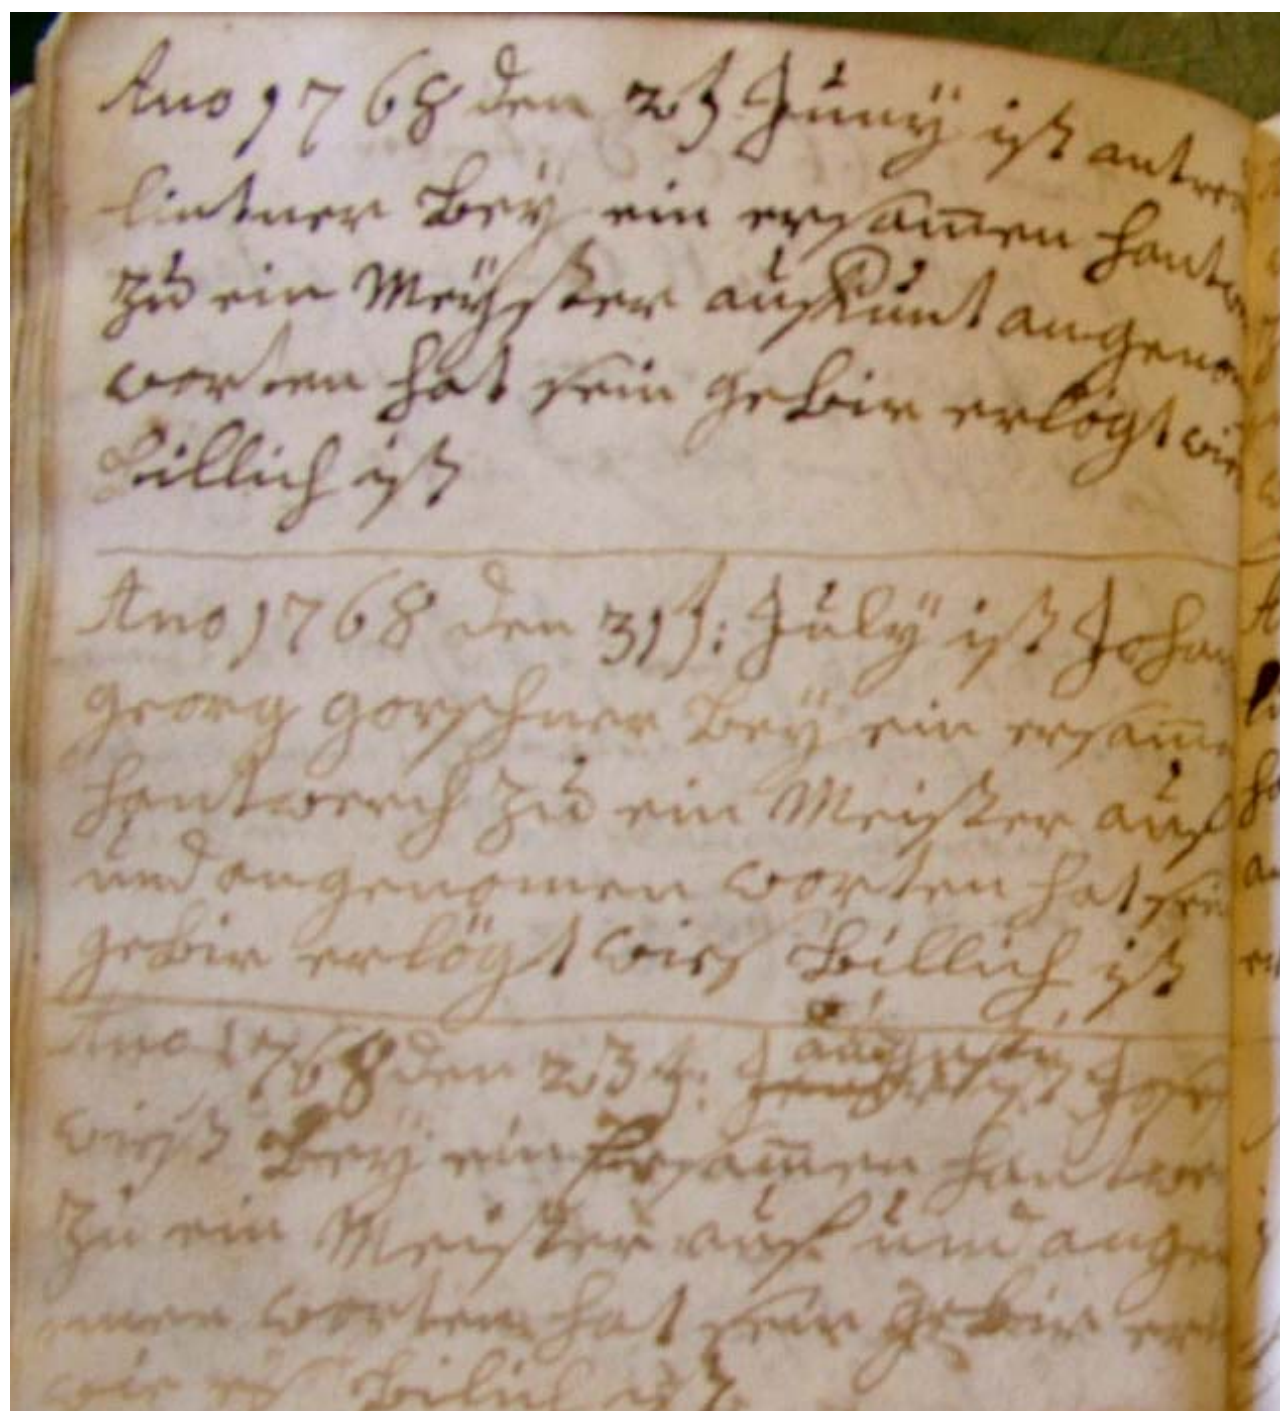 Ano 1768 den 2t Junÿ ist antre
lintner Beÿ ein ersamen hantw
zu ein Meÿster auf und angeno
worten hat sein gebir erlögt wie
Billich ist
Ano 1768 den 31t: Julÿ ist Johan
georg gorschner Beÿ ein ersame
hantwerch zu ein Meister auf
und angenomen worten hat sein
gebir erlögt wies Billich ist
Ano 1768 den 23t: augusti ist Josef
Beÿ ein Ersamen hantwe
zu ein Meister auf und ange
men worten hat sein gebir erl
wie es Bilich ist